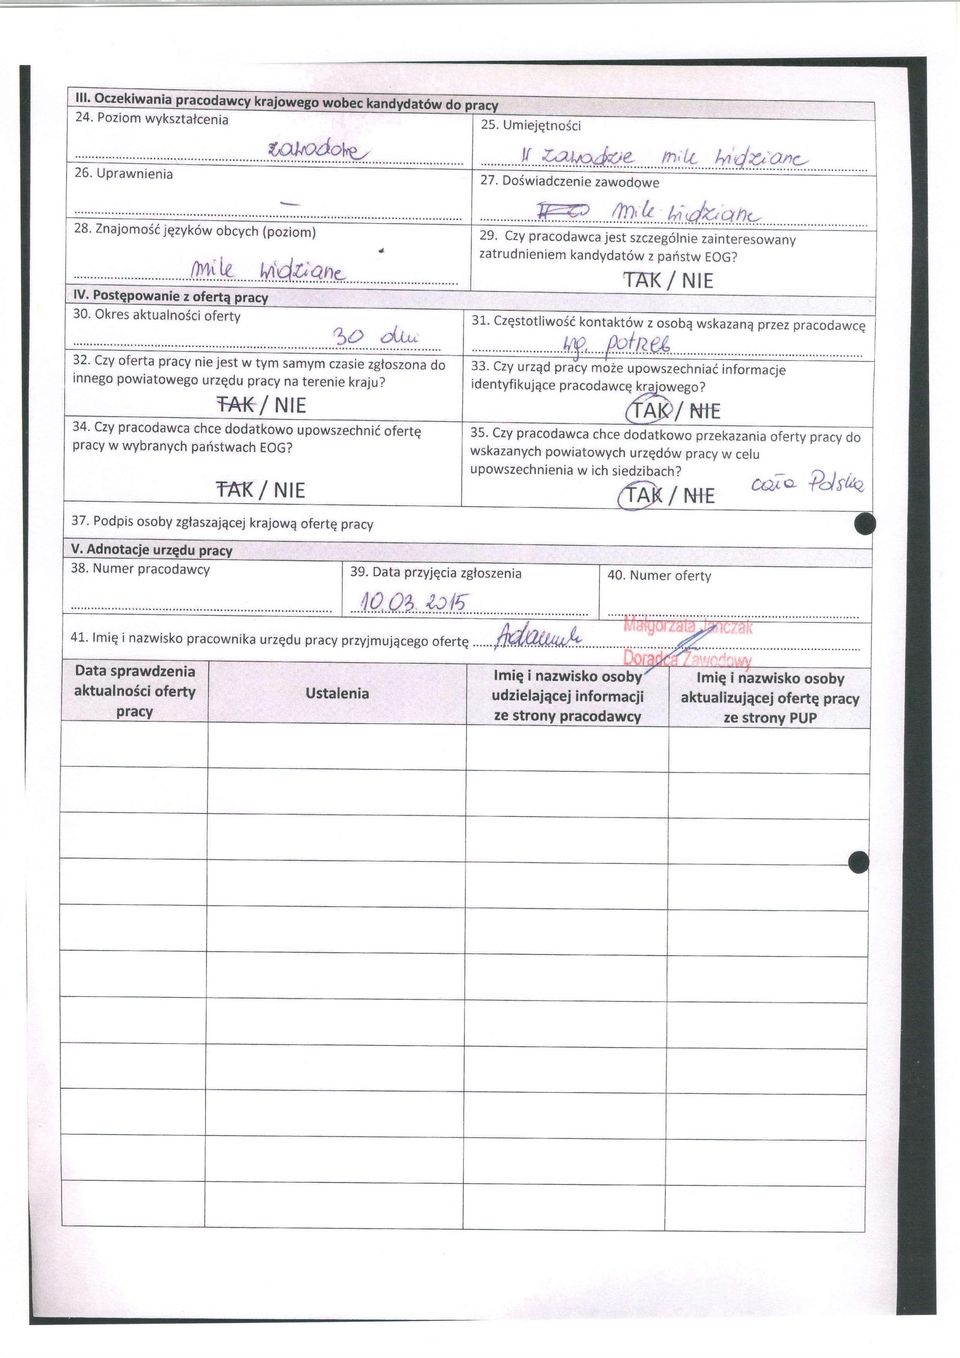 III. Oczekiwania pracodawcy krajowego wobec kandydatów do pracy
24. Poziom wykształcenia
zawodowe
25. Umiejętności
w zawodzie mile widziane
26. Uprawnienia
–
27. Doświadczenie zawodowe
mile widziane
28. Znajomość języków obcych (poziom)
mile widziane
29. Czy pracodawca jest szczególnie zainteresowany
zatrudnieniem kandydatów z państw EOG?
TAK / NIE
IV. Postępowanie z ofertą pracy
30. Okres aktualności oferty
30 dni
31. Częstotliwość kontaktów z osobą wskazaną przez pracodawcę
wg. potrzeb
32. Czy oferta pracy nie jest w tym samym czasie zgłoszona do
innego powiatowego urzędu pracy na terenie kraju?
TAK / NIE
33. Czy urząd pracy może upowszechniać informacje
identyfikujące pracodawcę krajowego?
TAK / NIE
34. Czy pracodawca chce dodatkowo upowszechnić ofertę
pracy w wybranych państwach EOG?
TAK / NIE
35. Czy pracodawca chce dodatkowo przekazania oferty pracy do
wskazanych powiatowych urzędów pracy w celu
upowszechnienia w ich siedzibach?
TAK / NIE cała Polska
37. Podpis osoby zgłaszającej krajową ofertę pracy
V. Adnotacje urzędu pracy
38. Numer pracodawcy
39. Data przyjęcia zgłoszenia
10.03.2015
40. Numer oferty
41. Imię i nazwisko pracownika urzędu pracy przyjmującego ofertę
Małgorzata Janczak
Doradca Zawodowy
Data sprawdzenia
aktualności oferty
pracy
Ustalenia
Imię i nazwisko osoby
udzielającej informacji
ze strony pracodawcy
Imię i nazwisko osoby
aktualizującej ofertę pracy
ze strony PUP